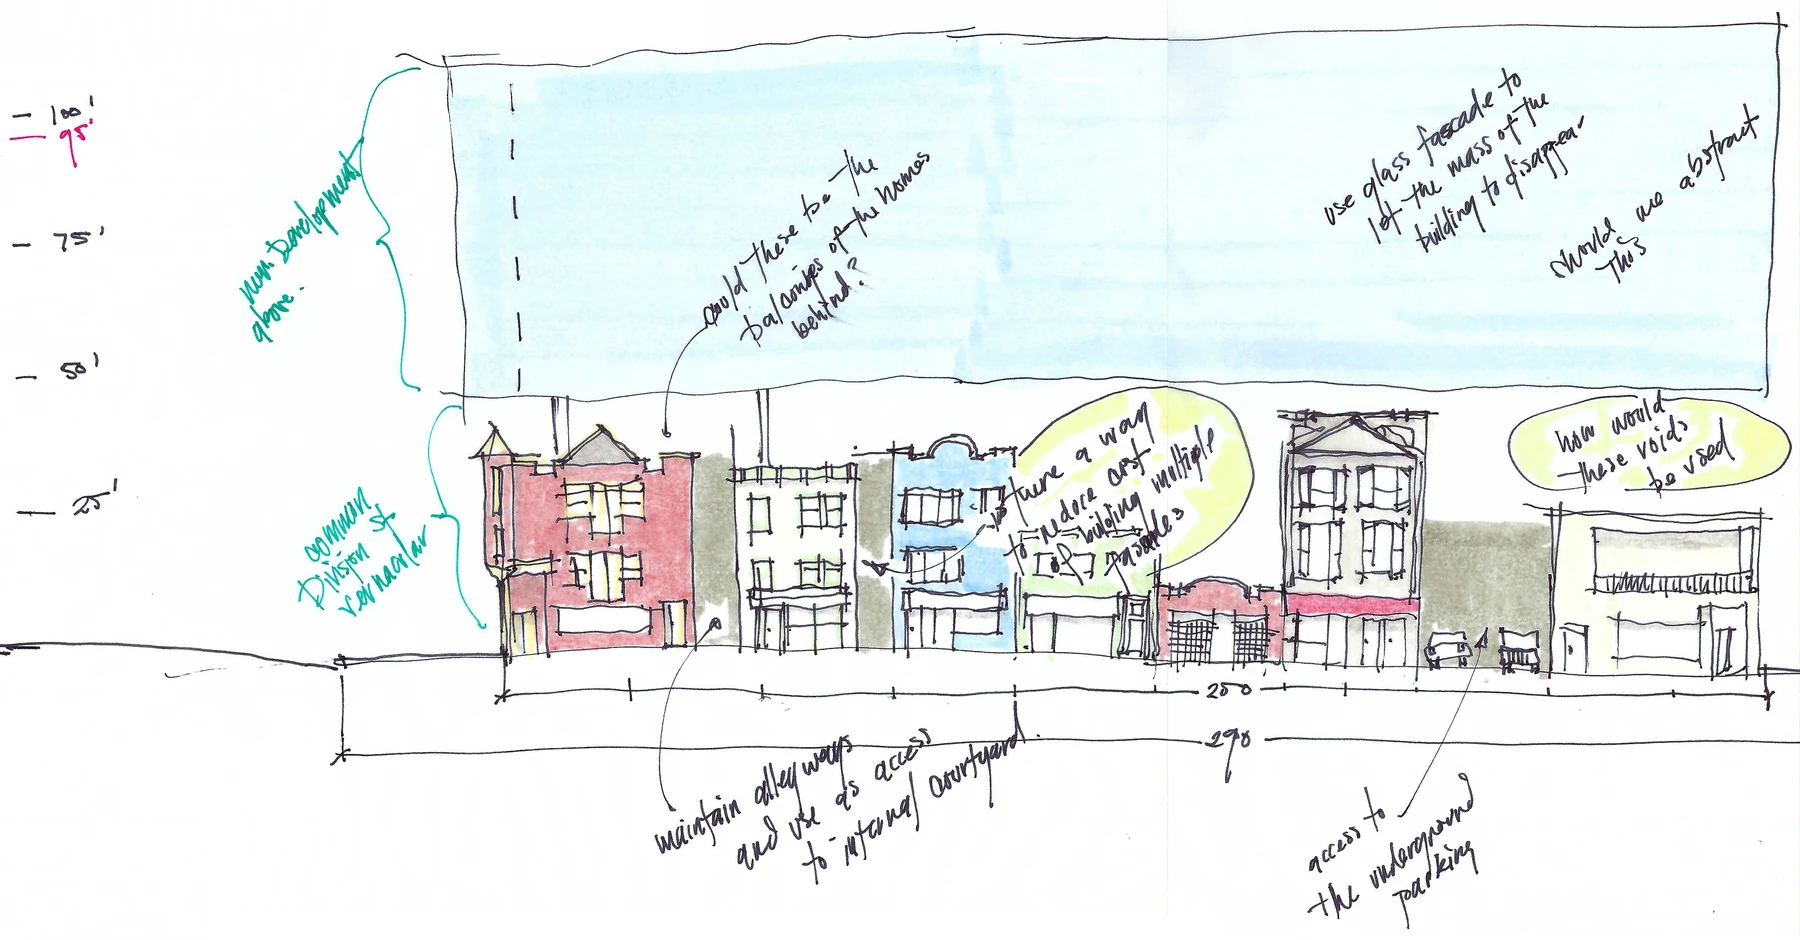 100'
95'
75'
50'
25'
new Development
above.
common
Division St
vernacular
could these be the
balconies of the homes
behind?
use glass fascade to
let the mass of the
building to disappear
should we abstract
this
is there a way
to reduce cost
of building multiple
facades
how would
these voids
be used
250
290
maintain alleyways
and use as access
to internal courtyard.
access to
the underground
parking